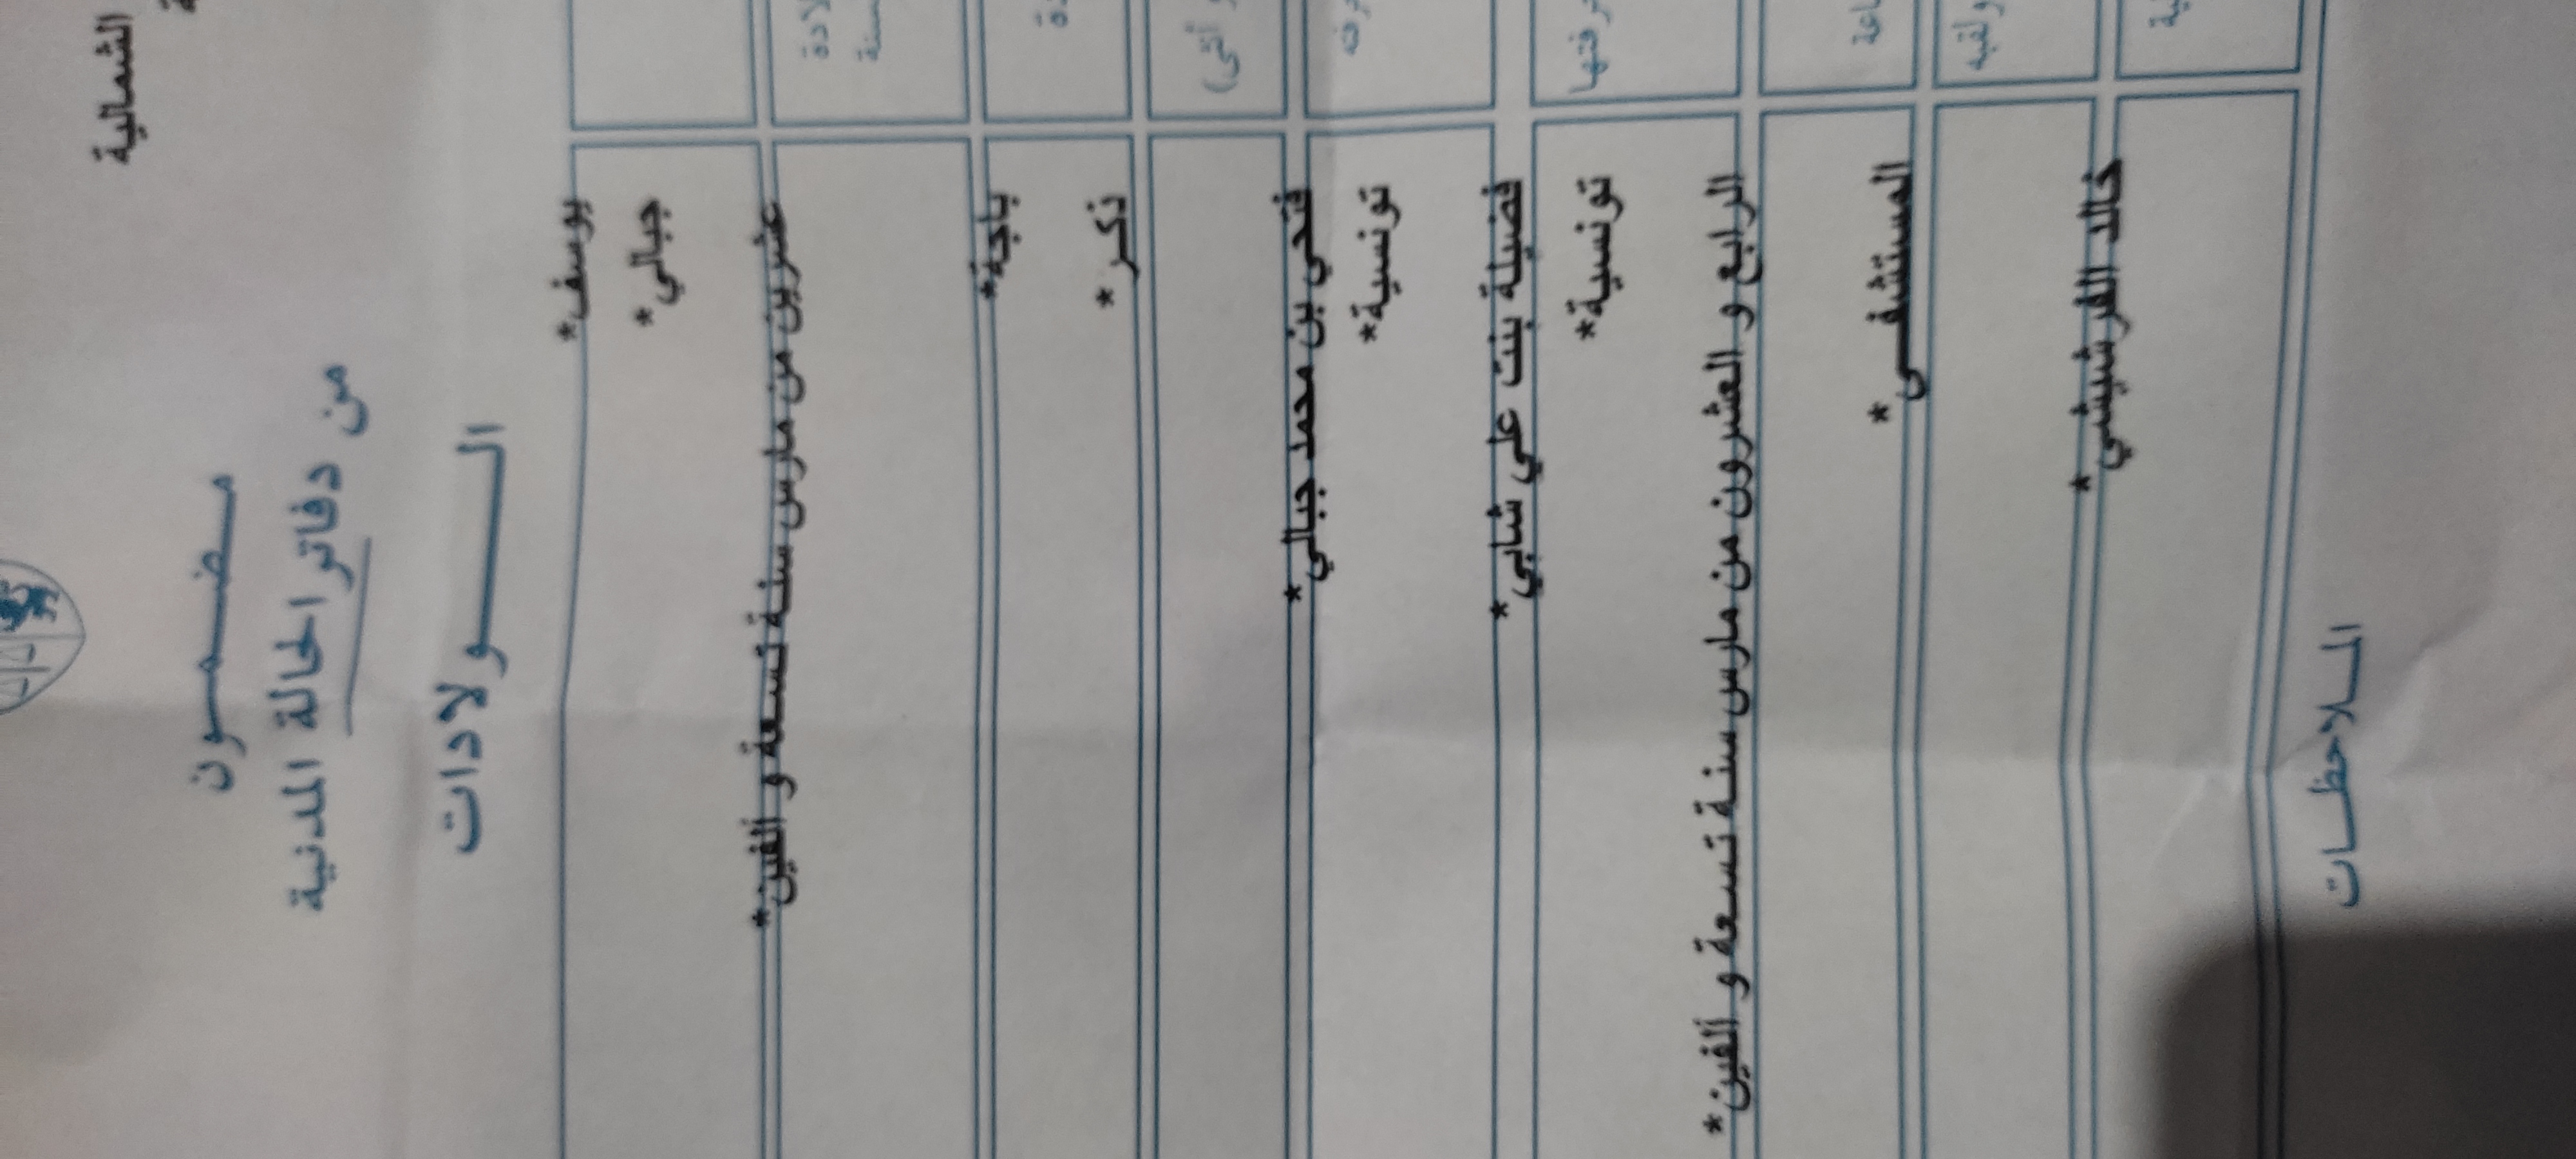 الشمالية
مضمون
من دفاتر الحالة المدنية
الولادات
يوسف*
جبالي*
عشرين من مارس سنة تسعة و ألفين*
باجة*
ذكر*
أنثى)
فتحي بن محمد جبالي*
تونسية*
فضيلة بنت علي شابي*
تونسية*
الرابع و العشرون من مارس سنة تسعة و ألفين*
المستشفى*
ولقبه
خالد الفرشيشي*
الملاحظات